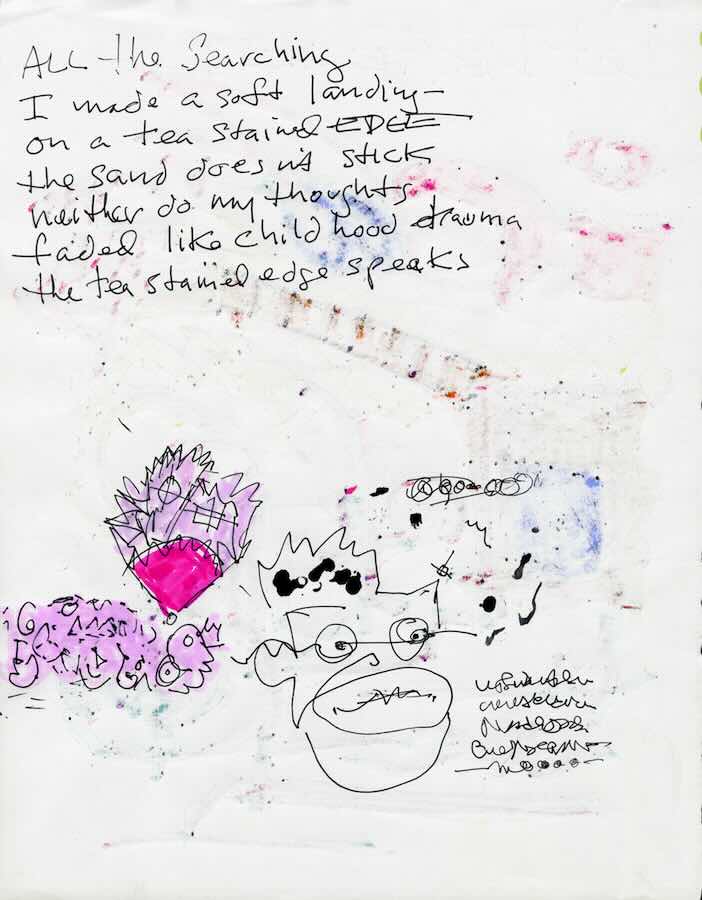 ALL the Searching
I made a soft landing
on a tea stained EDGE
the sand does nt stick
neither do my thoughts
faded like childhood trauma
the tea stained edge speaks